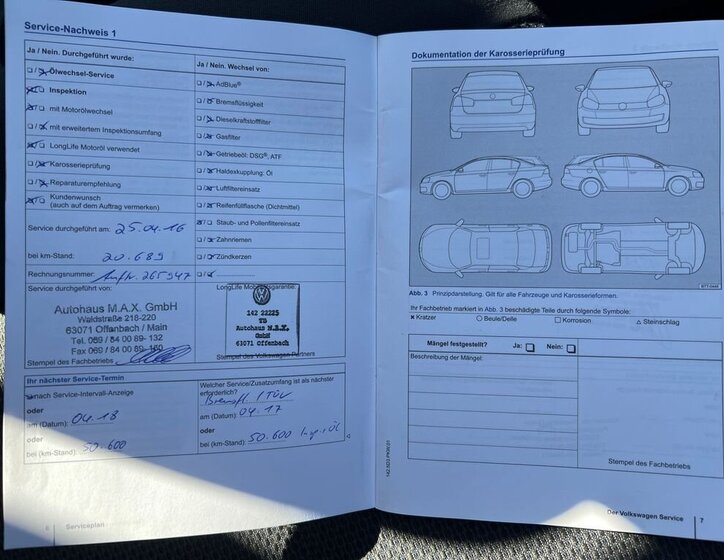 Service-Nachweis 1
Ja / Nein. Durchgeführt wurde:
Ölwechsel-Service
Inspektion
mit Motorölwechsel
mit erweitertem Inspektionsumfang
LongLife Motoröl verwendet
Karosserieprüfung
Reparaturempfehlung
Kundenwunsch
(auch auf dem Auftrag vermerken)
Service durchgeführt am: 25.04.16
bei km-Stand: 20.689
Rechnungsnummer: Auftr. 265947
Ja / Nein. Wechsel von:
AdBlue®
Bremsflüssigkeit
Dieselkraftstofffilter
Gasfilter
Getriebeöl: DSG®, ATF
Haldexkupplung: Öl
Luftfiltereinsatz
Reifenfüllflasche (Dichtmittel)
Staub- und Pollenfiltereinsatz
Zahnriemen
Zündkerzen
Service durchgeführt von:
Autohaus M.A.X. GmbH
Waldstraße 218-220
63071 Offenbach / Main
Tel. 069 / 84 00 89- 132
Fax 069 / 84 00 89-160
Stempel des Fachbetriebs
LongLife Mobilitätsgarantie:
142 22225
TB
Autohaus M.A.X.
GmbH
63071 Offenbach
Stempel des Volkswagen Partners
Ihr nächster Service-Termin
nach Service-Intervall-Anzeige
oder
am (Datum): 04.18
oder
bei (km-Stand): 50.600
Welcher Service/Zusatzumfang ist als nächster
erforderlich?
am (Datum): 04.17
oder
bei (km-Stand): 50.600
6 Serviceplan
Dokumentation der Karosserieprüfung
Abb. 3 Prinzipdarstellung. Gilt für alle Fahrzeuge und Karosserieformen.
Ihr Fachbetrieb markiert in Abb. 3 beschädigte Teile durch folgende Symbole:
× Kratzer ○ Beule/Delle □ Korrosion △ Steinschlag
Mängel festgestellt? Ja: Nein:
Beschreibung der Mängel:
Stempel des Fachbetriebs
Der Volkswagen Service 7